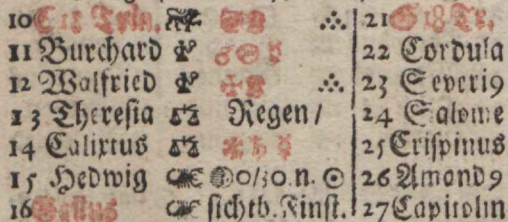 10 C 18 Trin. 21 G 18 Tr.
11 Burchard ☌ ☉ ☿ 22 Cordula
12 Walfried 23 Severi9
13 Theresia Regen / 24 Salome
14 Calixtus 25 Crispinus
15 Hedwig 0/30 n. ☉ 26 Amand9
16 Gallus sichtb. Finst. 27 Capitolin